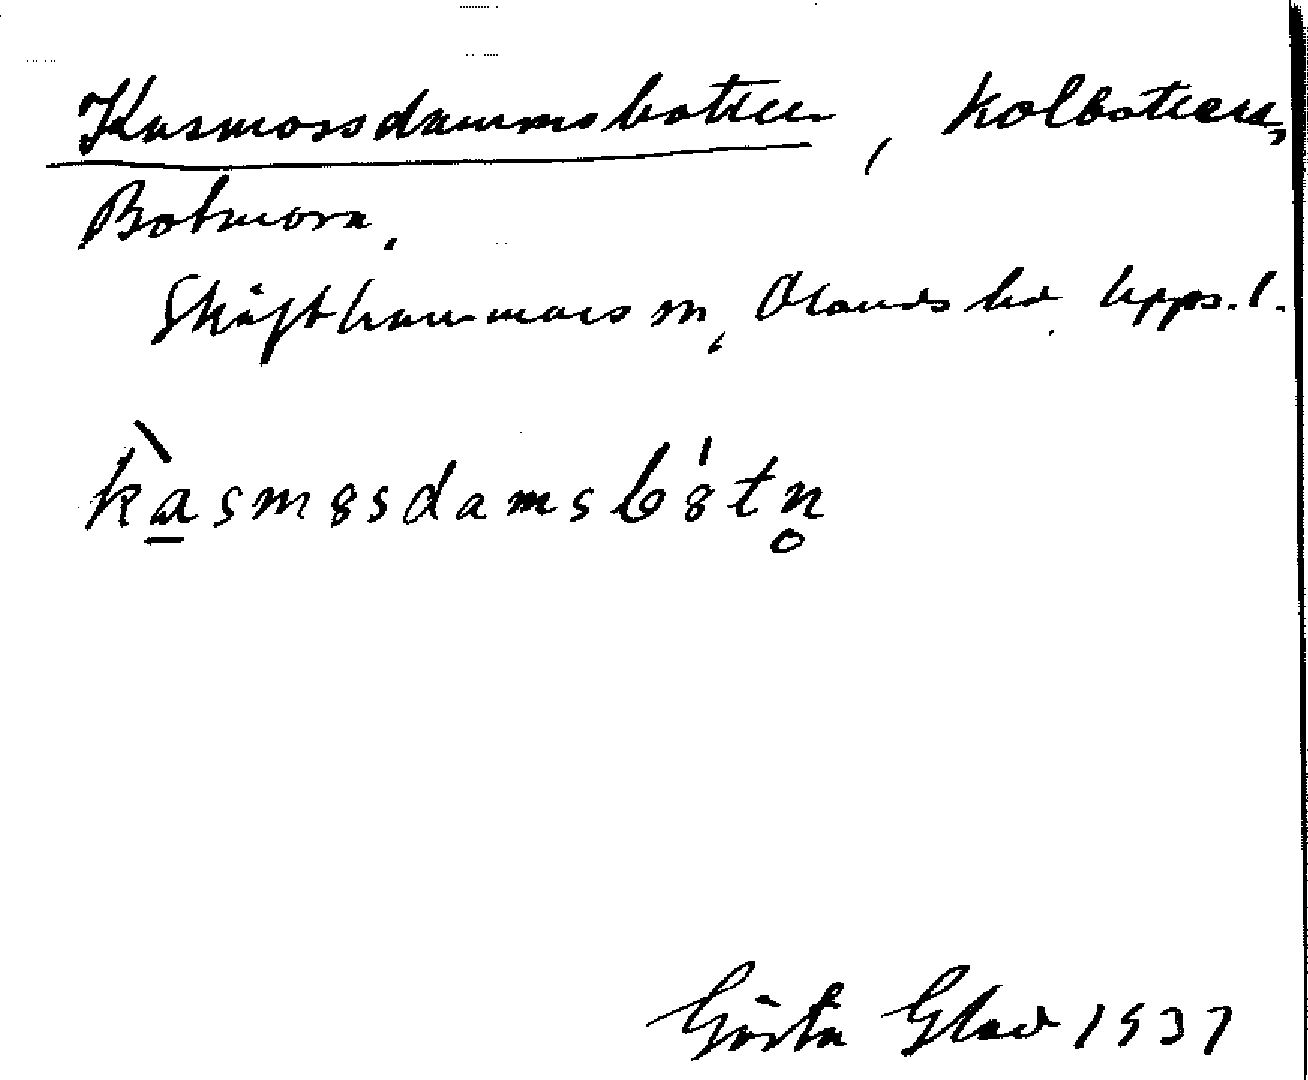 Kasmossdammsbotten, kolbotten,
Botmora.
Skäfthammars sn, Olands hd. Upps. l.
kasmȣsdamsbȣ́tn̥
Gösta Glad 1937